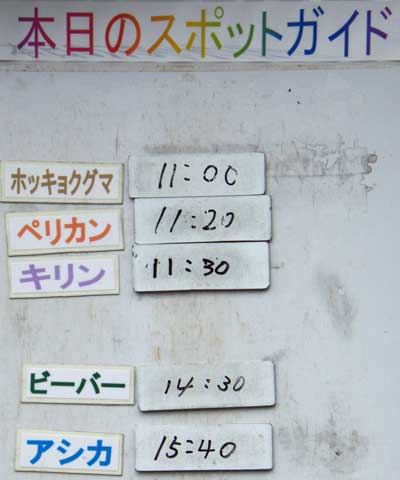 本日のスポットガイド
ホッキョクグマ 11:00
ペリカン 11:20
キリン 11:30
ビーバー 14:30
アシカ 15:40